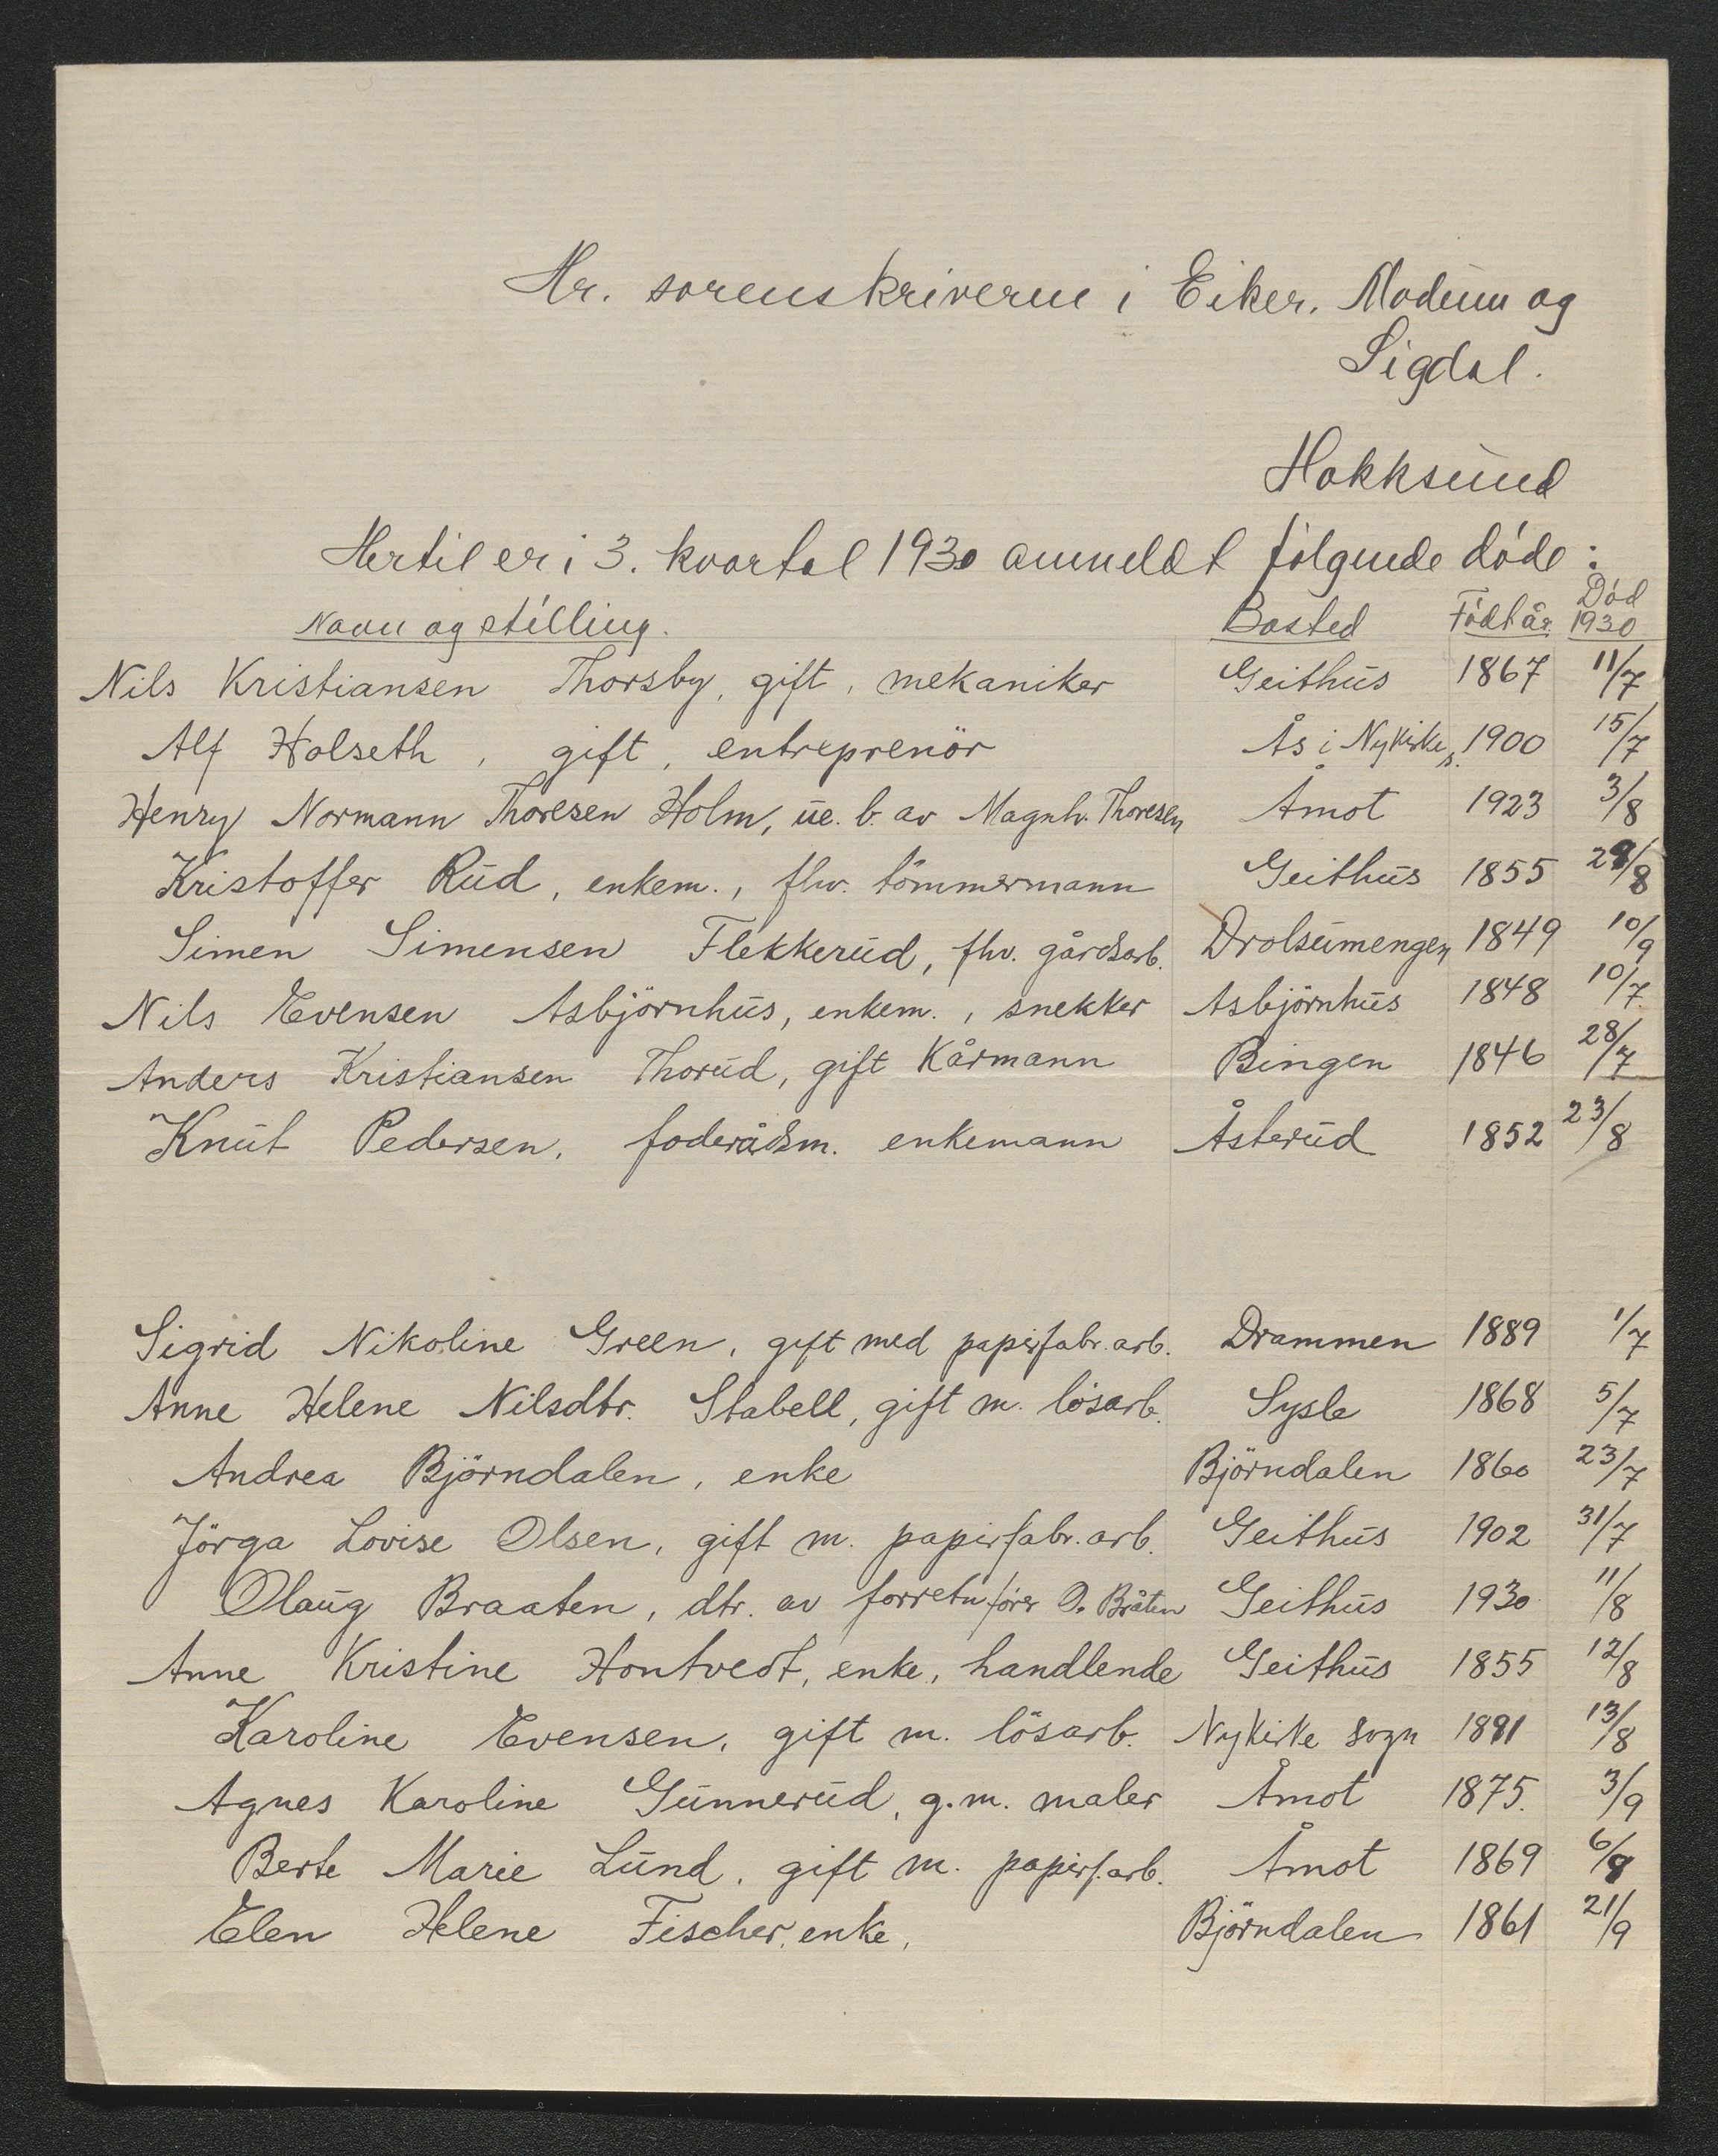 Hr. sorenskriveren i Eiker, Modum og
Sigdal.
Hokksund
Hertil er i 3. kvartal 1930 anmeldt følgende døde:
Navn og stilling. Bosted Født år Død 1930
Nils Kristiansen Thorsby, gift, mekaniker Geithus 1867 11/7
Alf Holseth, gift, entreprenör Ås i Nykirke s. 1900 15/7
Henry Normann Thoresen Holm, ue. b. av Magnh. Thoresen Åmot 1923 3/8
Kristoffer Rud, enkem., fhv. tömmermann Geithus 1855 /8
Simen Simensen Flekkerud, fhv. gårdsarb. Drolsumengen 1849 10/9
Nils Evensen Asbjörnhus, enkem., snekker Asbjörnhus 1848 10/7
Anders Kristiansen Thorud, gift Kårmann Bingen 1846 28/7
Knut Pedersen, foderådsm. enkemann Åsterud 1852 23/8
Sigrid Nikoline Green, gift med papirfabr. arb. Drammen 1889 1/7
Anne Helene Nilsdtr. Stabell, gift m. lösarb. Sysle 1868 5/7
Andrea Björndalen, enke Björndalen 1860 23/7
Jörga Lovise Olsen, gift m. papirfabr. arb. Geithus 1902 31/7
Olaug Braaten, dtr. av forretn förer O. Bråten Geithus 1930 11/8
Anne Kristine Hontvedt, enke, handlende Geithus 1855 12/8
Karoline Evensen, gift m. lösarb. Nykirke sogn 13/8
Agnes Karoline Gunnerud, g. m. maler Åmot 1875. 3/9
Berte Marie Lund, gift m. papirf. arb. Åmot 1869 6/
Elen Helene Fischer, enke, Björndalen 1861 21/9